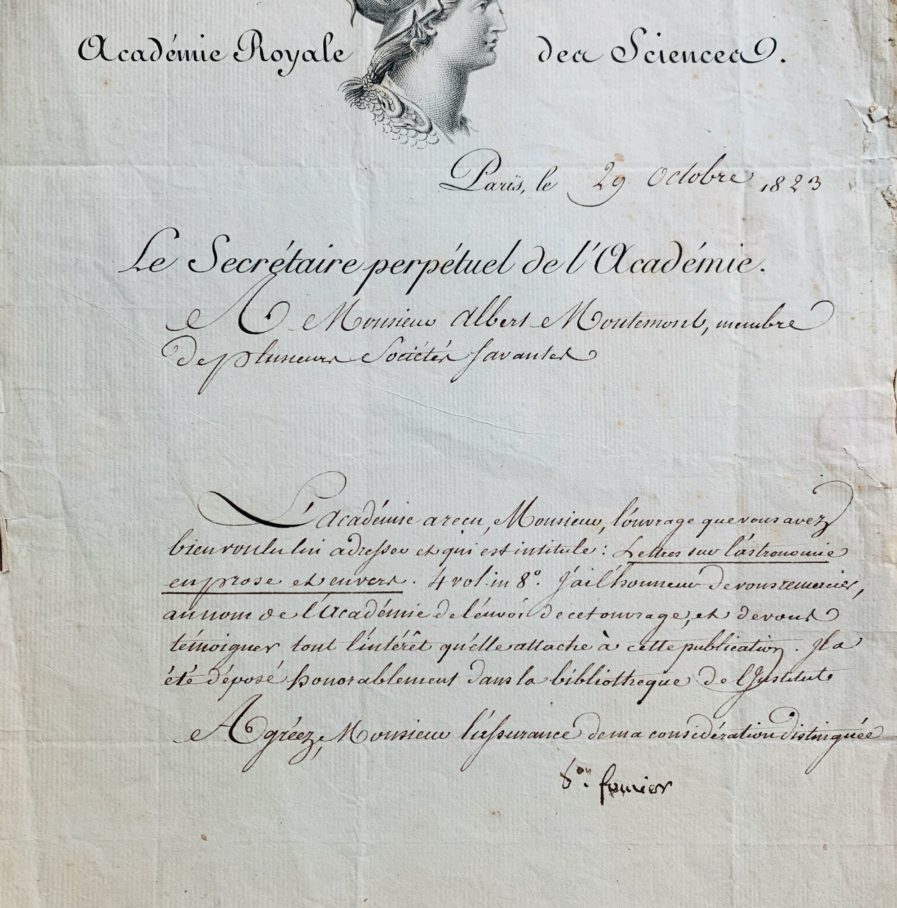 Académie Royale des Sciences.
Paris, le 29 Octobre 1823
Le Secrétaire perpétuel de l'Académie.
A Monsieur Albert Montemont, membre
De plusieurs Sociétés Savantes
L'académie a reçu, Monsieur, l'ouvrage que vous avez
bien voulu lui adresser et qui est intitulé: Lettres sur l'astronomie
en prose et en vers. 4 vol. in 8°. J'ai l'honneur de vous remercier,
au nom de l'Académie de l'envoi de cet ouvrage, et de vous
témoigner tout l'intérêt qu'elle attache à cette publication. Il a
été déposé honorablement dans la bibliothèque de l'Institut
Agréez, Monsieur l'assurance de ma considération distinguée
Bon fourier